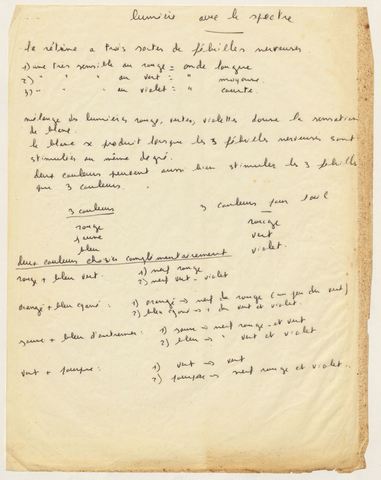 lumière avec le spectre
la rétine a trois sortes de fibrilles nerveuses
1) une très sensible au rouge = onde longue
2) " " " au vert = " moyenne.
3) " " " au violet = " courte.
mélange des lumières rouge, vertes, violettes donne la sensation
de blanc.
le blanc se produit lorsque les 3 fibrilles nerveuses sont
stimulées au même degré.
deux couleurs peuvent aussi bien stimuler les 3 fibrilles
que 3 couleurs.
3 couleurs
rouge
jaune
bleu
3 couleurs pour l'œil
rouge
vert
violet.
deux couleurs choisies complémentairement
rouge + bleu vert. 1) nerf rouge
2) nerf vert - violet
orangé + bleu cyané: 1) orangé → nerf du rouge (un peu du vert)
2) bleu cyané → du vert et violet.
jaune + bleu d'outremer: 1) jaune → nerf rouge et vert
2) bleu → " vert et violet
vert + pourpre: 1) vert → vert
2) pourpre → nerf rouge et violet.